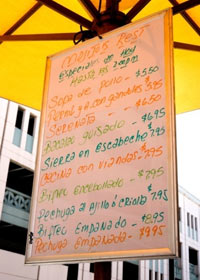 Especiales de Hoy
Hasta las
Sopa de pollo - $5.50
Pernil ga con gandules $5.95
Serenata - $6.50
Bacalao guisado - $6.95
Sierra en Escabeche 7.95
Tocino con viandas - 7.95
Biftec Encebollado - $7.95
Pechuga a ajillo o criolla $7.95
Biftec Empanado - $8.95
Pechuga Empanada - $9.95